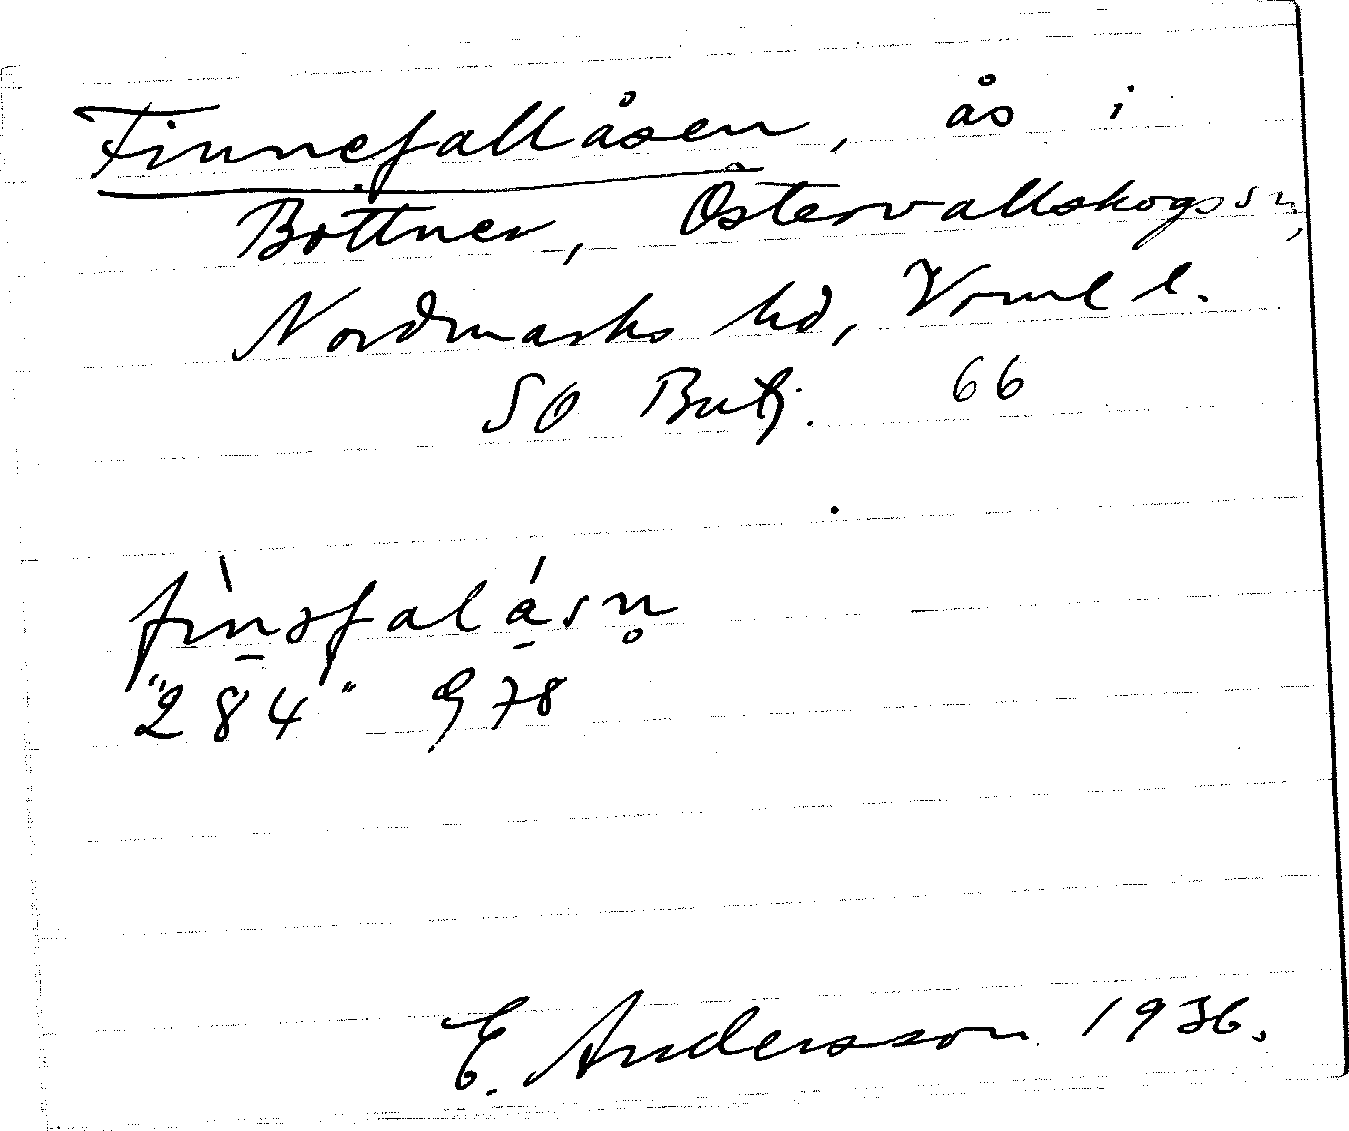 Finnefallåsen, ås i
Bottnen, Östervallskogs sn,
Nordmarks hd, Vrml l.
SO Butj. 66
fìnəfalásn̥
"284" G 78
E. Andersson 1936.